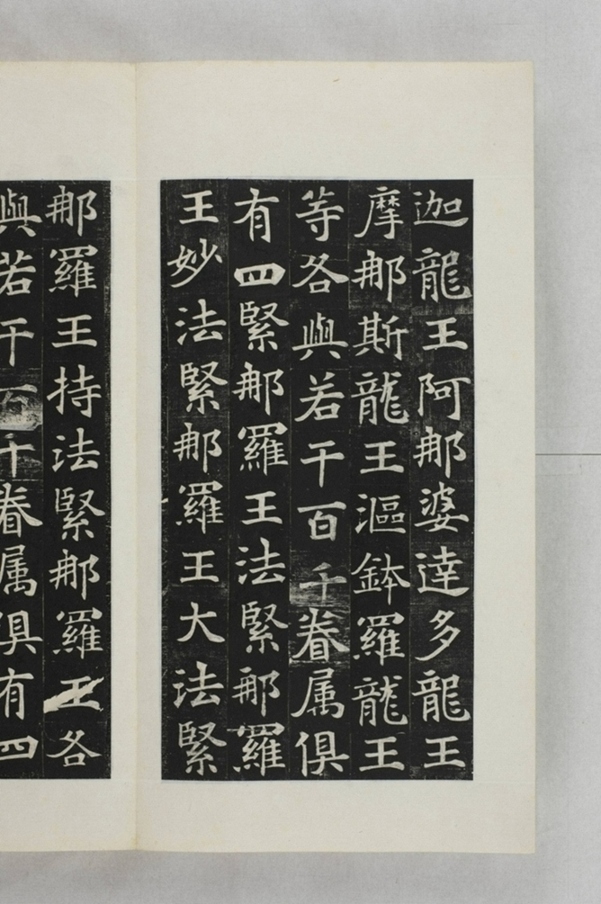 迦龍王阿那婆達多龍王
摩那斯龍王漚鉢羅龍王
等各與若干百千眷属俱
有四緊那羅王法緊那羅
王妙法緊那羅王大法緊
那羅王持法緊那羅王各
與若干百千眷属俱有四